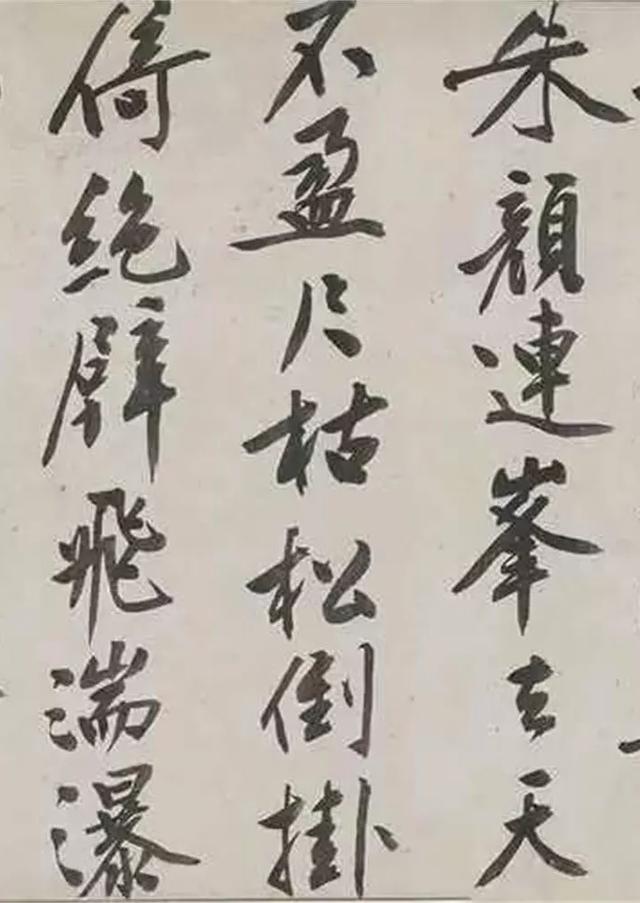 朱顔連峯去天
不盈尺枯松倒掛
倚絶壁飛湍瀑